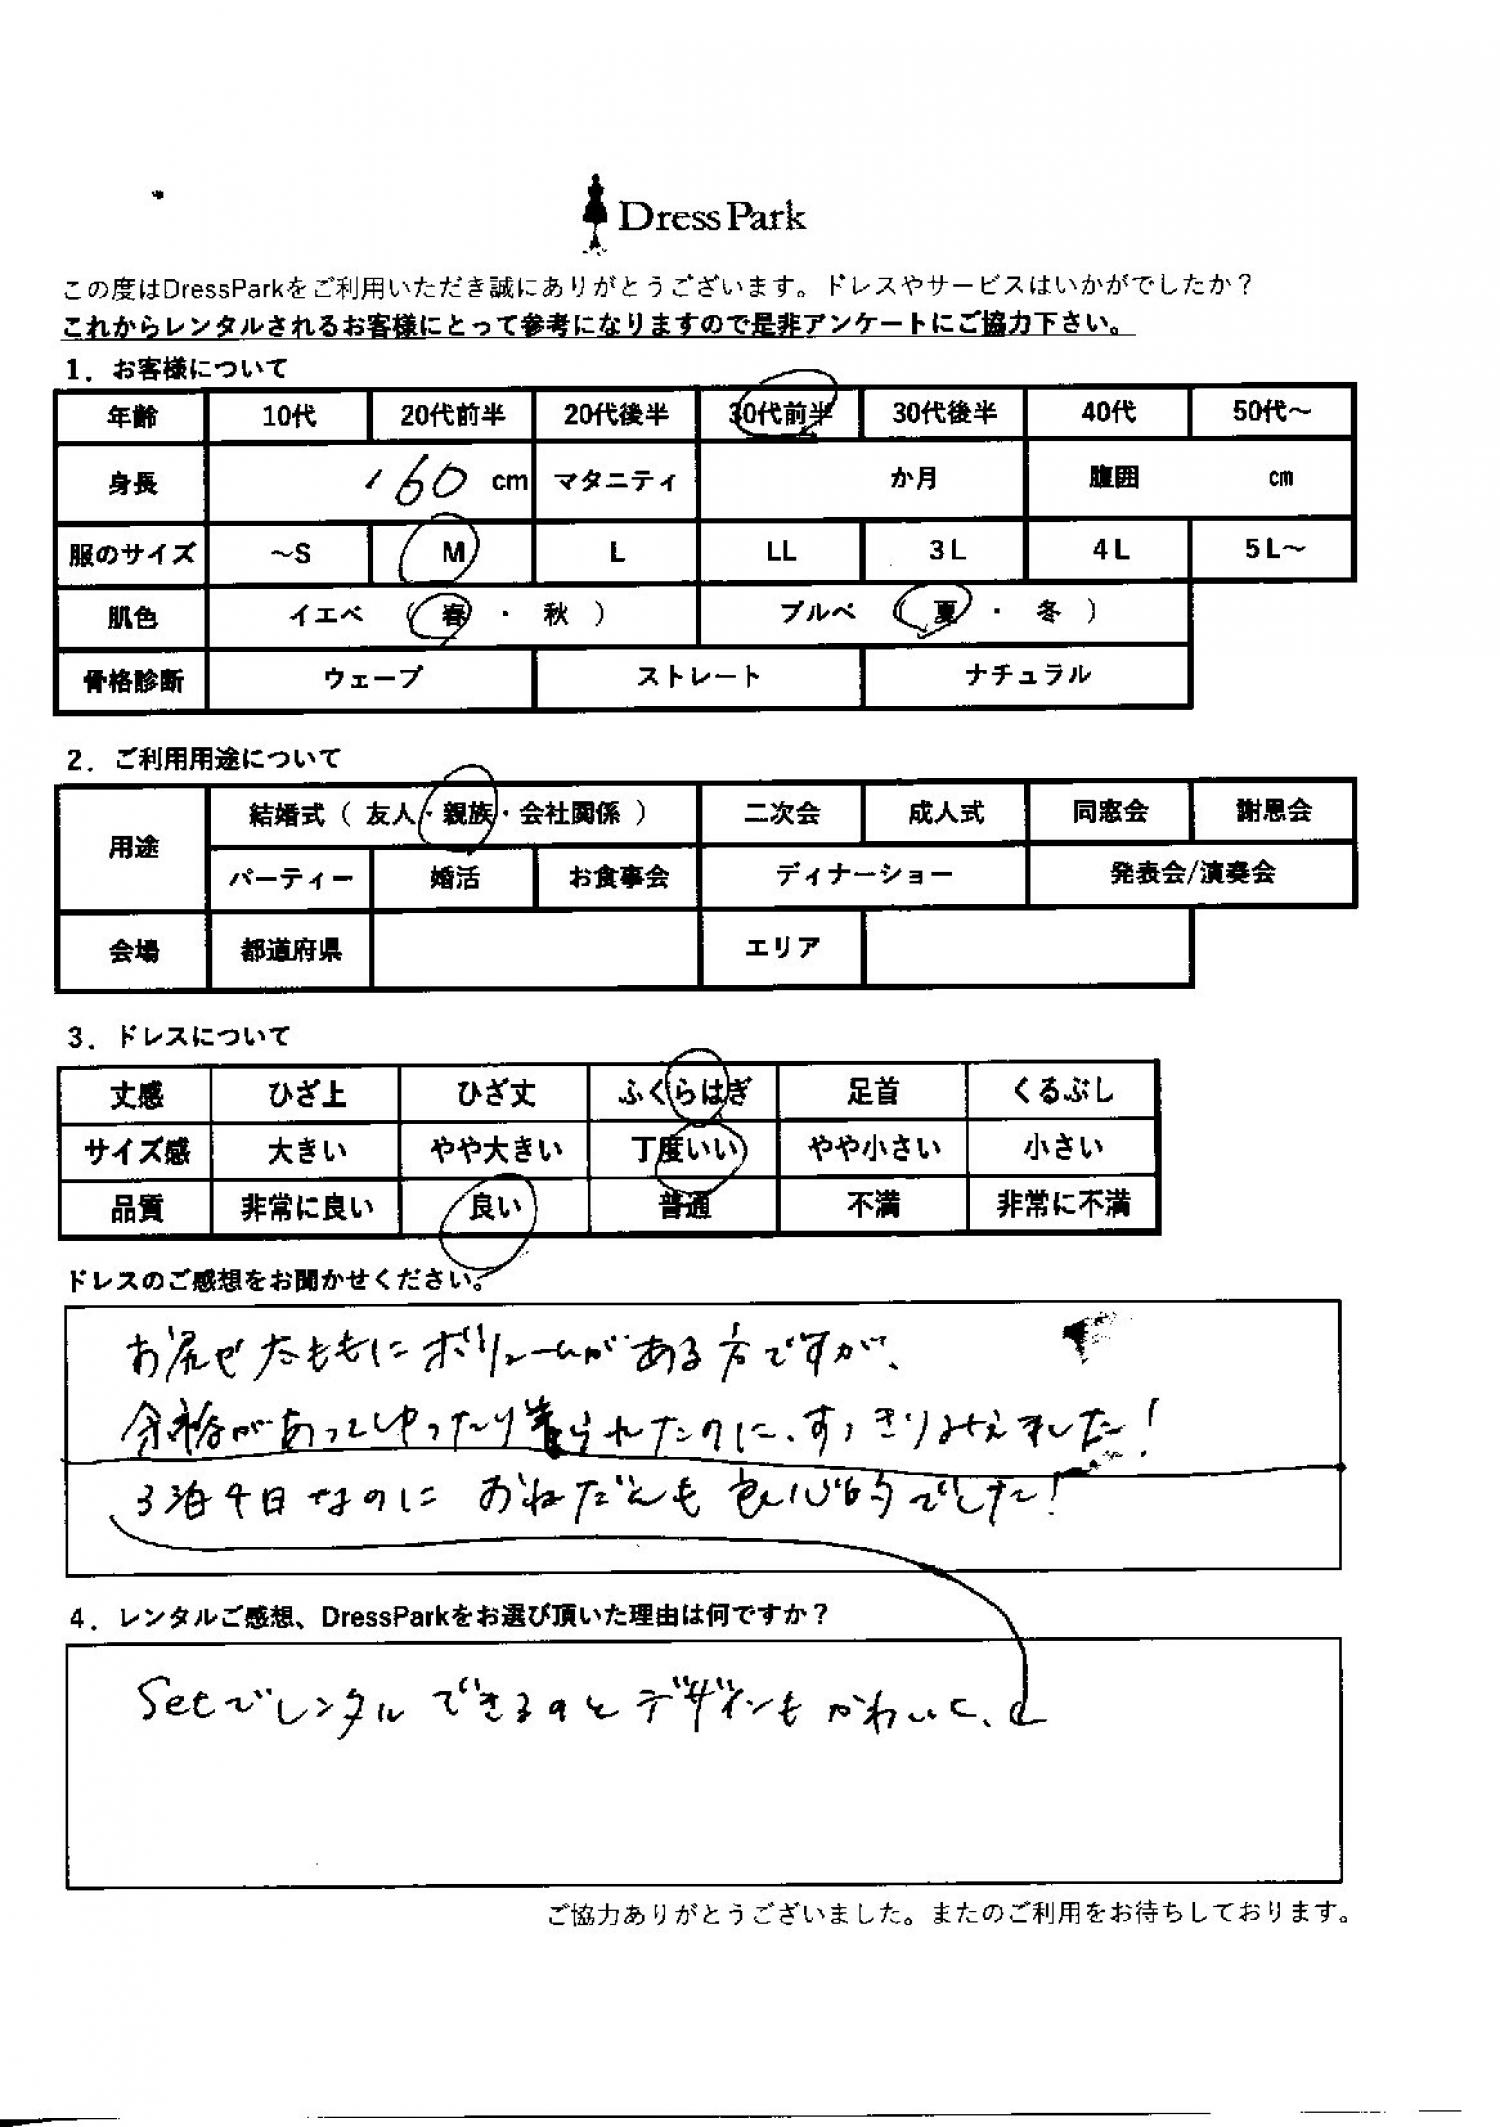 DressPark
この度はDressParkをご利用いただき誠にありがとうございます。ドレスやサービスはいかがでしたか？
これからレンタルされるお客様にとって参考になりますので是非アンケートにご協力下さい。
1．お客様について
年齢 10代 20代前半 20代後半 30代前半 30代後半 40代 50代～
身長 160 cm マタニティ か月 腹囲 cm
服のサイズ ～S M L LL 3L 4L 5L～
肌色 イエベ （ 春 ・ 秋 ） ブルベ （ 夏 ・ 冬 ）
骨格診断 ウェーブ ストレート ナチュラル
2．ご利用用途について
用途 結婚式（ 友人・親族・会社関係 ） 二次会 成人式 同窓会 謝恩会
パーティー 婚活 お食事会 ディナーショー 発表会/演奏会
会場 都道府県 エリア
3．ドレスについて
丈感 ひざ上 ひざ丈 ふくらはぎ 足首 くるぶし
サイズ感 大きい やや大きい 丁度いい やや小さい 小さい
品質 非常に良い 良い 普通 不満 非常に不満
ドレスのご感想をお聞かせください。
お尻や太ももにボリュームがある方ですが、
余裕があってゆったり着られたのに、すっきりみえました！
3泊4日なのに おねだんも良心的でした！
4．レンタルご感想、DressParkをお選び頂いた理由は何ですか？
Setでレンタルできるのとデザインもかわいく、
ご協力ありがとうございました。またのご利用をお待ちしております。